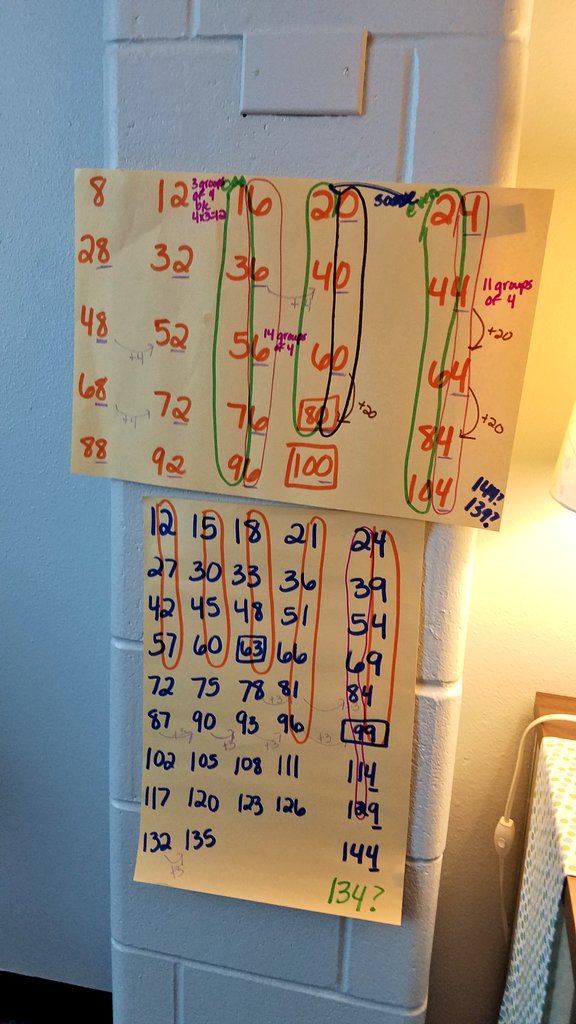 8 12 3 groups of 4 b/c 4x3=12 16 20 24
28 32 36 40 44 11 groups of 4
+4
+20
48 52 56 14 groups of 4 60 64
+4
+20
+20
68 72 76 80 84
+4
88 92 96 100 104
149?
139?
12 15 18 21 24
27 30 33 36 39
42 45 48 51 54
57 60 63 66 69
72 75 78 81 84
+3
87 90 93 96 99
+3 +3
102 105 108 111 114
117 120 123 126 129
132 135 144
+3
134?